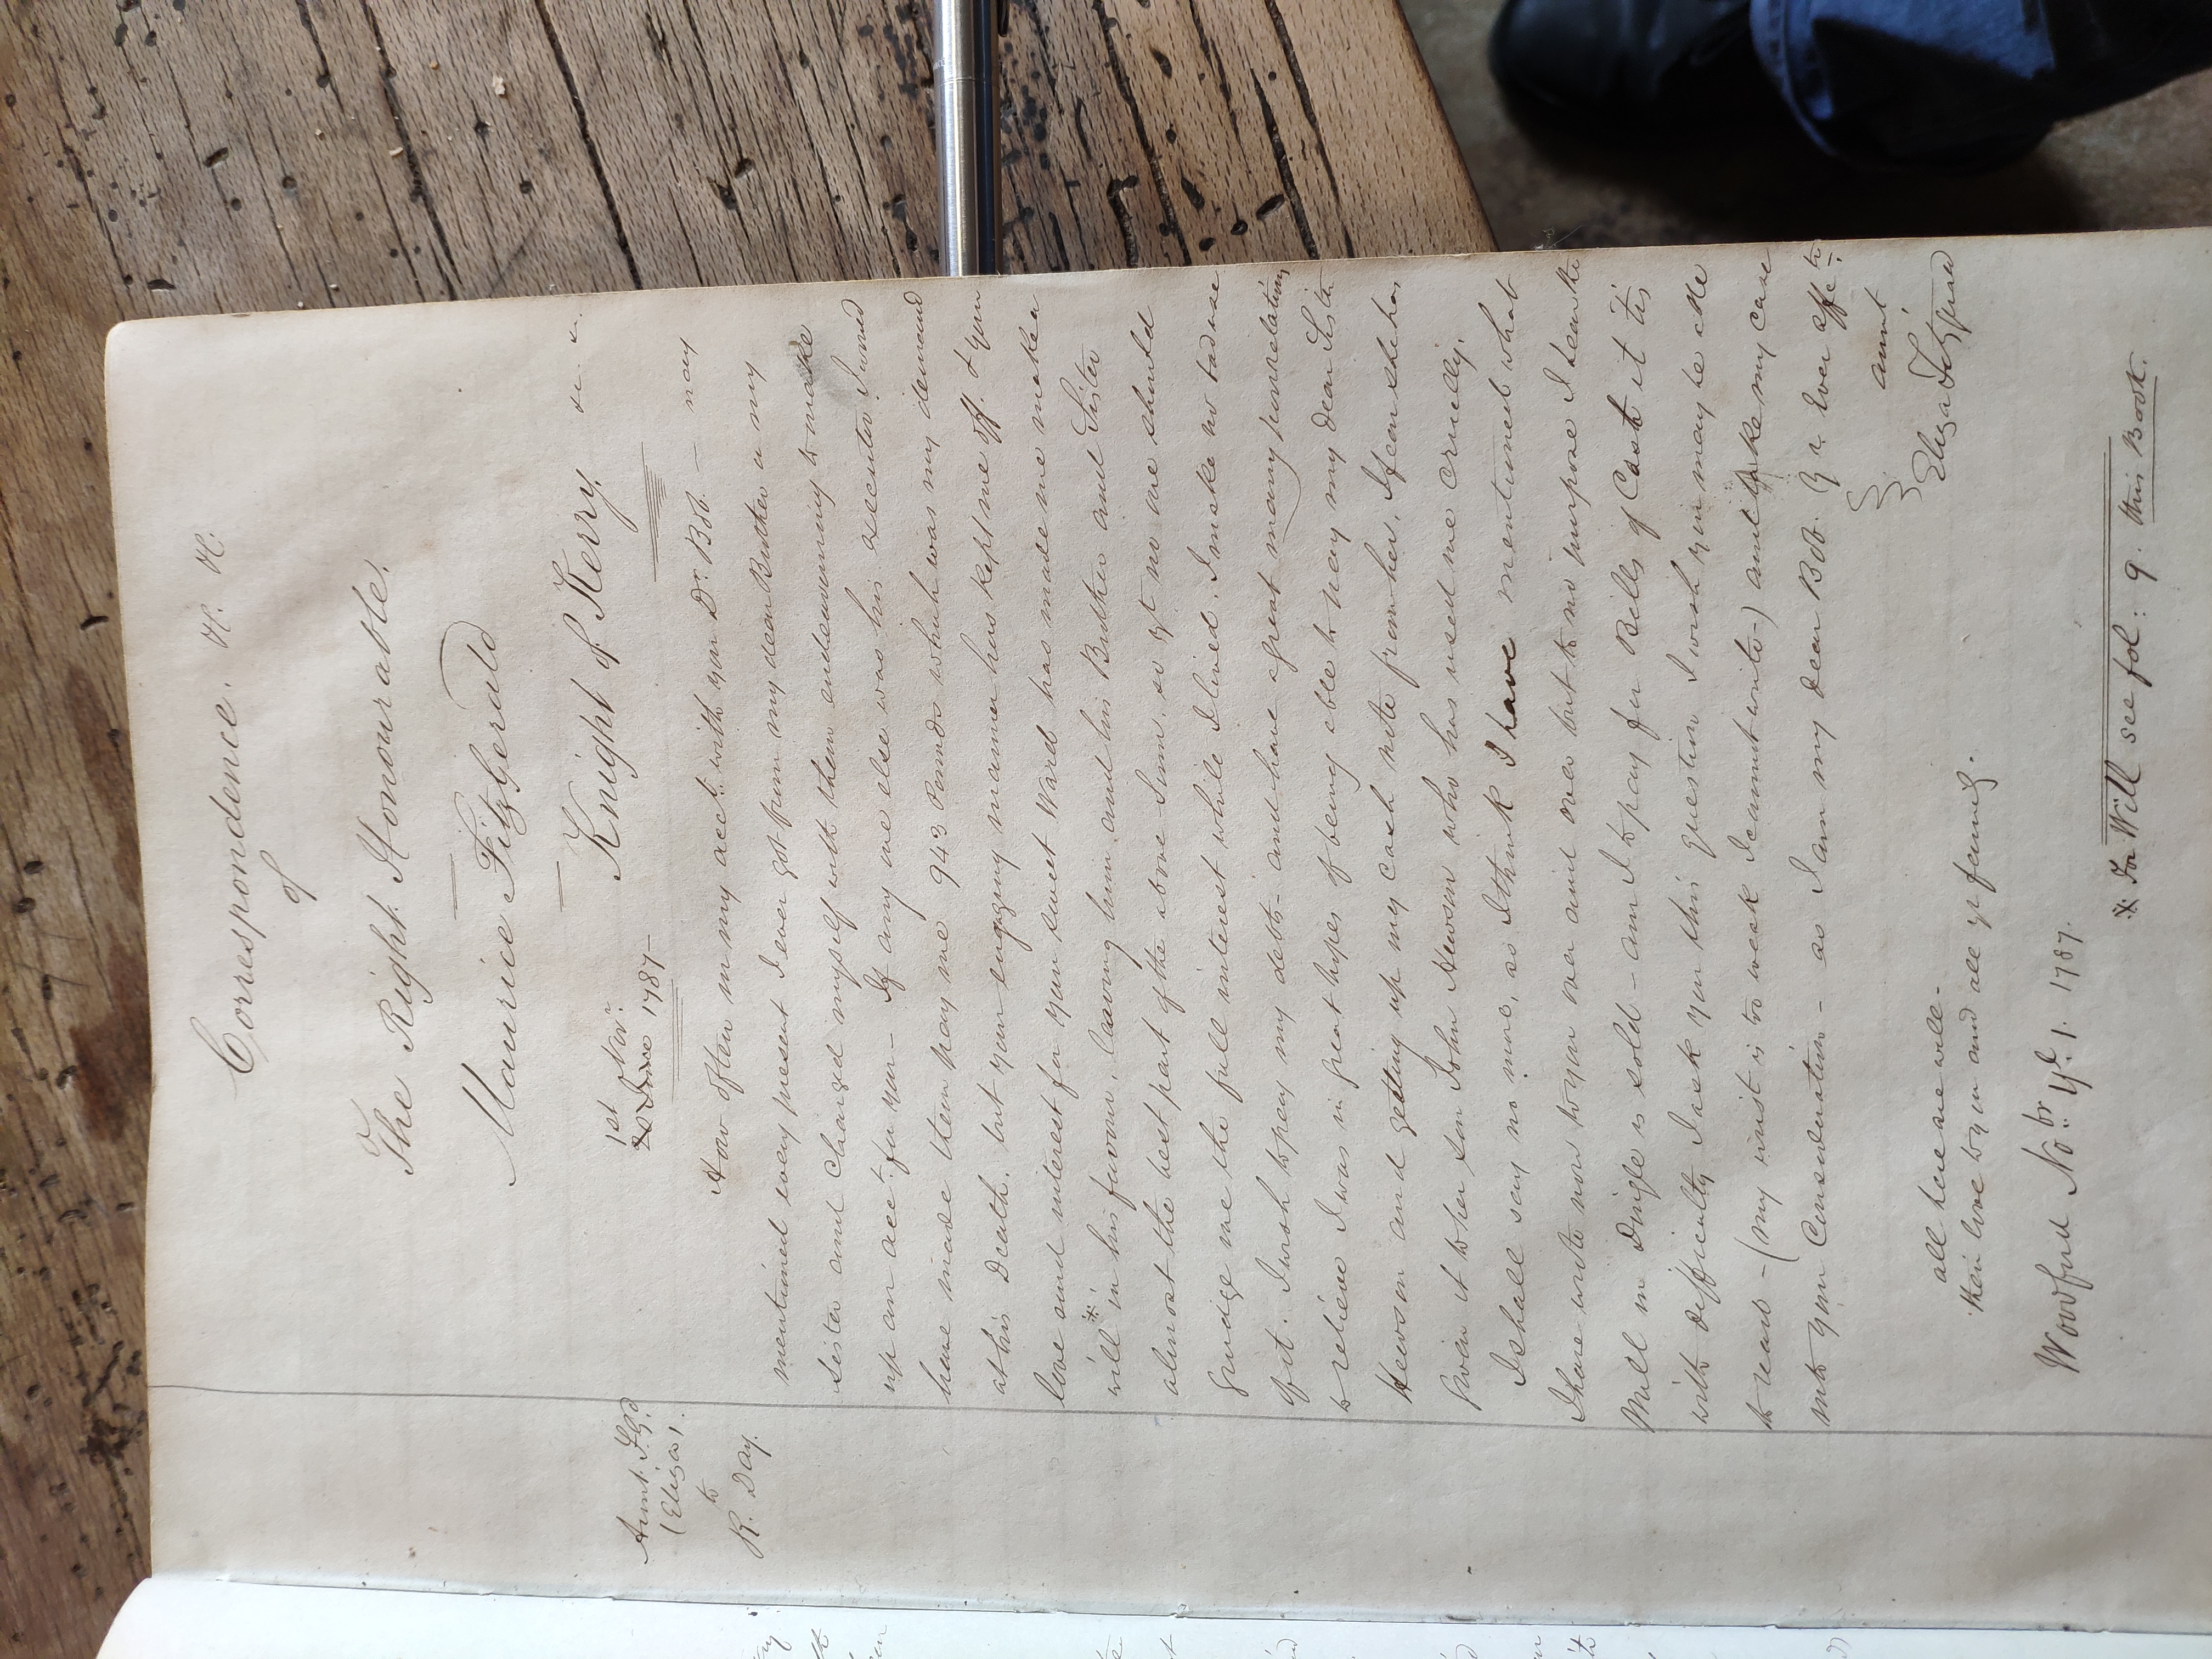 Correspondence. H. H.
of
The Right Honourable.
Maurice FitzGerald
Knight of Kerry. &c. &c.
Aunt. FGd
(Eliza).
to
R. Day.
1st Novr.
1787—
How often in my acct. with you Dr. Bob. — nay
mentioned every present I ever got from my dear Brother & my
sister and charged myself with them endeavouring to make
up an acct. for you — If any one else was his executor I would
have made them pay me 943 Pounds which was my demand
at his Death, but your engaging manner has kept me off. & your
love and interest for your sweet Ward has made me make a
will * in his favour, leaving him, and his Brother and Sister
almost the best part of the above Sum, so yt no one should
grudge me the full interest while I lived. I make no bad use
of it. I wish to pay my debts — and have a great many poor relations
to relieve I was in great hopes of being able to pay my Dear Sister
Hewson and getting up my cash note from her, I fear she has
given it to her son John Hewson who has used me cruelly.
I shall say no more, as I think I have mentioned what
I have wrote now to you over and over but to no purpose I hear the
Mill in Dingle is sold — am I to pay for Bills of Cost it tis
with difficulty I ask you this question I wish you may be able
to read — (my wrist is too weak I cannot write —) and take my case
into your Consideration — as I am my dear Bob. Yr. Ever affte
aunt
Eliza Fitzgerald
all here are well —
their love to you and all yr family.
Woodford Nobr. yd. 1. 1787.
* For Will see fol: 9. this Book.